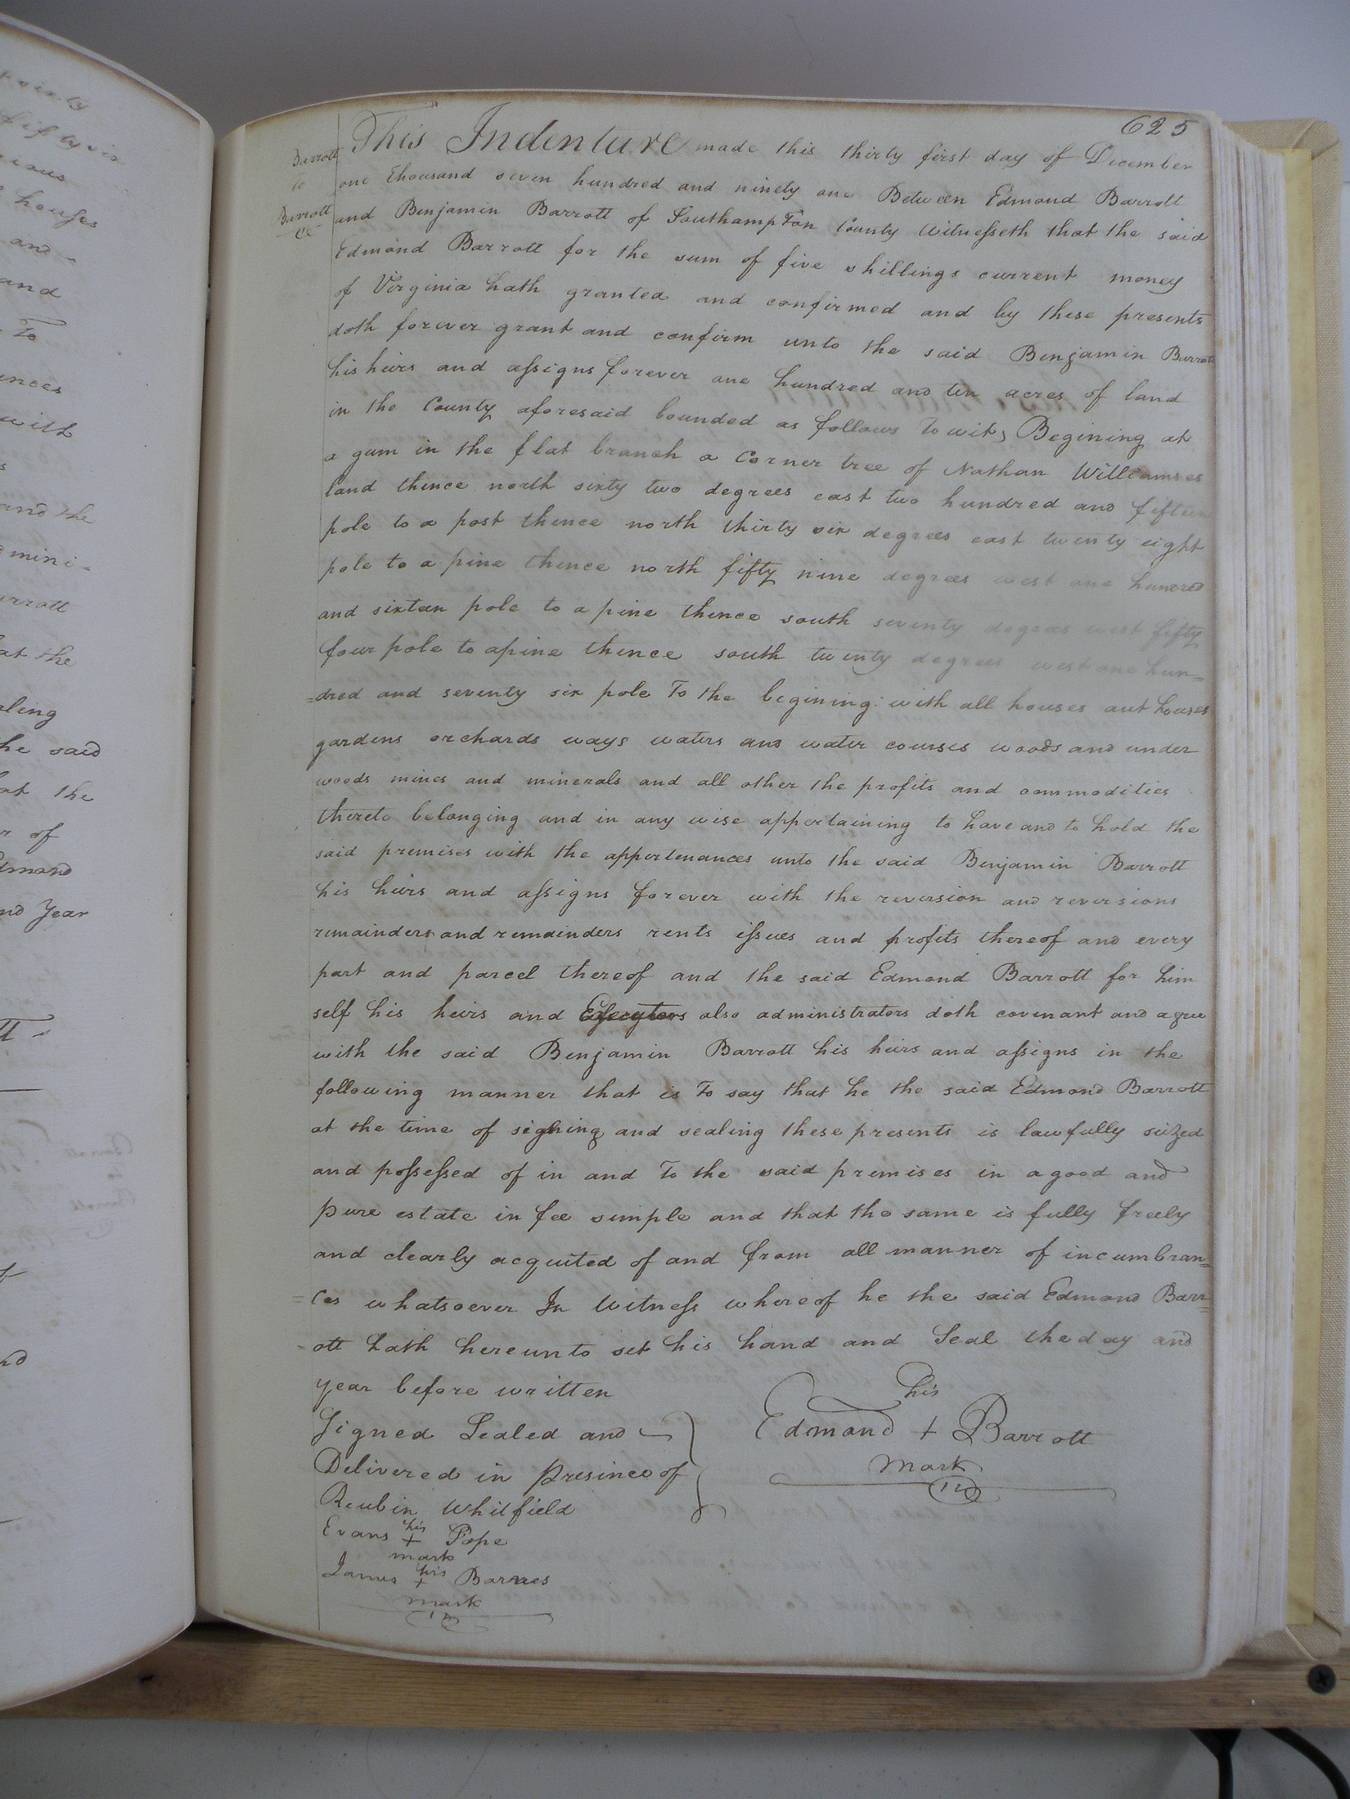 625
Barrott
to
Barrott
This Indenture made this thirty first day of December
one thousand seven hundred and ninety one Between Edmond Barrott
and Benjamin Barrott of Southampton County Witnesseth that the said
Edmond Barrott for the sum of five shillings current money
of Virginia hath granted and confirmed and by these presents
doth forever grant and confirm unto the said Benjamin Barrott
his heirs and assigns forever one hundred and ten acres of land
in the County aforesaid bounded as follows To wit, Begining at
a gum in the flat branch a Corner tree of Nathan Williamses
land thence north sixty two degrees east two hundred and fifteen
pole to a post thence north thirty six degrees east twenty eight
pole to a pine thence north fifty nine degrees west one hundred
and sixteen pole to a pine thence south seventy degrees west fifty
four pole to a pine thence south twenty degrees west one hun=
=dred and seventy six pole To the begining with all houses out houses
gardens orchards ways waters and water courses woods and under
woods mines and minerals and all other the profits and commodities
thereto belonging and in any wise appertaining to have and to hold the
said premises with the appertenances unto the said Benjamin Barrott
his heirs and assigns forever with the reversion and reversions
remainders and remainders rents issues and profits thereof and every
part and parcel thereof and the said Edmond Barrott for him
self his heirs and Executors also administrators doth covenant and agree
with the said Benjamin Barrott his heirs and assigns in the
following manner that is To say that he the said Edmond Barrott
at the time of signing and sealing these presents is lawfully seized
and possessed of in and To the said premises in a good and
pure estate in fee simple and that the same is fully freely
and clearly acquited of and from all manner of incumbran=
=ces whatsoever In Witness whereof he the said Edmond Barr=
-ott hath hereunto set his hand and Seal the day and
year before written
his
Edmond + Barrott
mark
Signed Sealed and
Delivered in presince of
Reubin Whitfield
his
Evans + Pope
mark
his
James + Barnes
mark